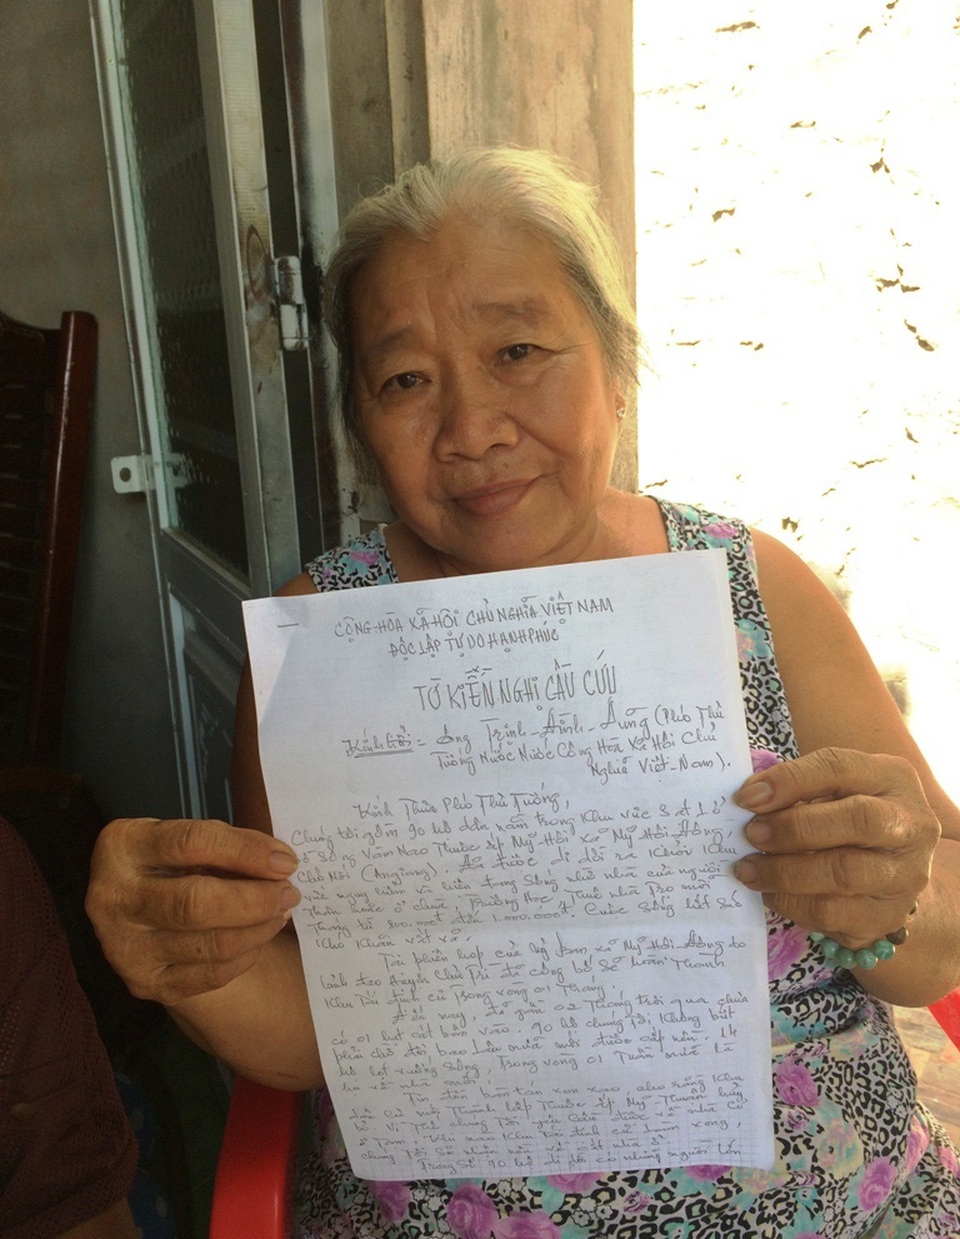 CỘNG HÒA XÃ HỘI CHỦ NGHĨA VIỆT NAM
ĐỘC LẬP TỰ DO HẠNH PHÚC
TỜ KIẾN NGHỊ CẦU CỨU
Kính Gởi = Ông Trịnh - Đình - Dũng (Phó Thủ
Tướng Nước Nước Cộng Hòa Xã Hội Chủ
Nghĩa Việt - Nam).
Kính Thưa Phó Thủ Tướng,
Chúng tôi gồm 90 hộ dân nằm trong khu vực Sạt Lở
Sông Vàm Nao Thuộc ấp Mỹ Hội xã Mỹ Hội Đông,
Chợ Mới (Angiang). Đã được di dời ra khỏi khu
vực nguy hiểm và hiện đang sống nhờ nhà của người
Thân hoặc ở chùa. Trường Học, Thuê nhà Trọ mỗi
Tháng từ 800.000đ đến 1.000.000đ. Cuộc sống hết sức
Khó Khăn vất vả.
Tại phiên họp của Uỷ ban xã Mỹ Hội Đông do
lãnh đạo huyện Chủ Trì đã công bố sẽ hoàn Thành
Khu Tái định cư Trong vòng 01 Tháng.
Đến nay, đã gần 02 Tháng trôi qua chưa
có 01 hạt cát bơm vào. 90 hộ chúng Tôi không biết
phải chờ đợi bao lâu nữa mới được cấp nền.
Trong vòng 01 Tuần nữa là
Tin đồn bàn tán xôn xao cho rằng khu
Thuộc ấp Mỹ Thuận
chúng Tôi yêu cầu được về nhà cũ
Khu Tái định cư làm xong,
chúng Tôi sẽ nhận nền và cất nhà ở
Trong số 90 hộ di dời có những người lớn